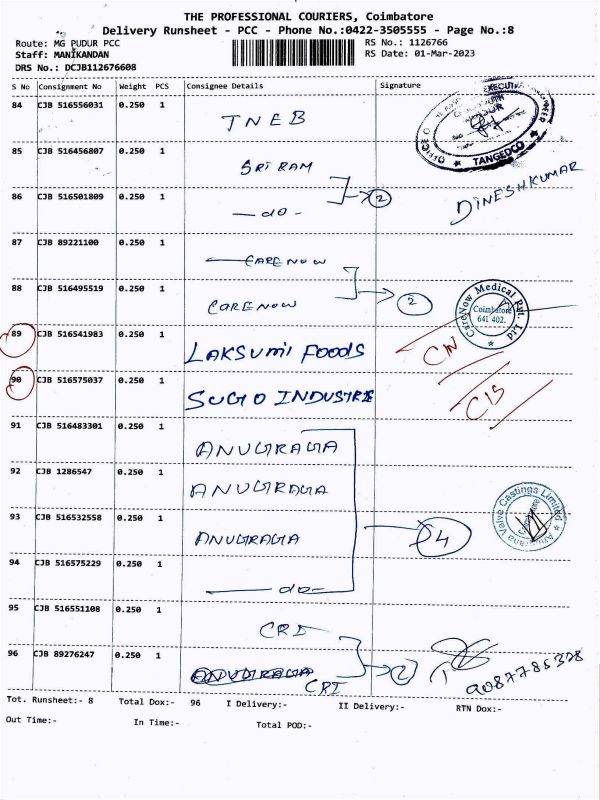 THE PROFESSIONAL COURIERS, Coimbatore
Delivery Runsheet - PCC - Phone No.:0422-3505555 - Page No.:8
Route: MG PUDUR PCC
RS No.: 1126766
Staff: MANIKANDAN
RS Date: 01-Mar-2023
DRS No.: DCJB112676608
S No Consignment No Weight PCS Consignee Details Signature
84 CJB 516556031 0.250 1 TNEB
TANGEDCO
85 CJB 516456807 0.250 1 SRI RAM
2
DINESHKUMAR
86 CJB 516501809 0.250 1 - do -
87 CJB 89221100 0.250 1 CARE NOW
88 CJB 516495519 0.250 1 CARE NOW
2
CareNow Medical Pvt. Ltd
Coimbatore
641 402.
89 CJB 516541983 0.250 1 LAKSUMI FOODS
90 CJB 516575037 0.250 1 SUGO INDUSTRIE
C/S
91 CJB 516483301 0.250 1 ANUGRAGA
92 CJB 1286547 0.250 1 ANUGRAGA
93 CJB 516532558 0.250 1 ANUGRAGA
4
Valve Castings Limited
94 CJB 516575229 0.250 1 - do -
95 CJB 516551108 0.250 1 CRI
96 CJB 89276247 0.250 1 CRI
2
9087785328
Tot. Runsheet:- 8 Total Dox:- 96 I Delivery:- II Delivery:- RTN Dox:-
Out Time:- In Time:- Total POD:-